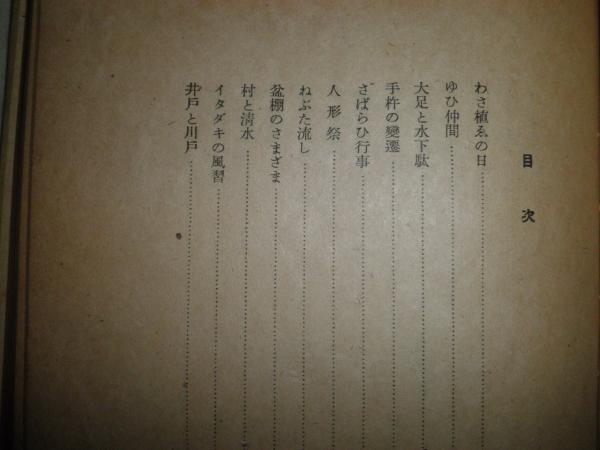 目次
わさ植ゑの日
ゆひ仲間
大足と水下駄
手杵の變遷
さばらひ行事
人形祭
ねぶた流し
盆棚のさまざま
村と淸水
イタダキの風習
井戸と川戸